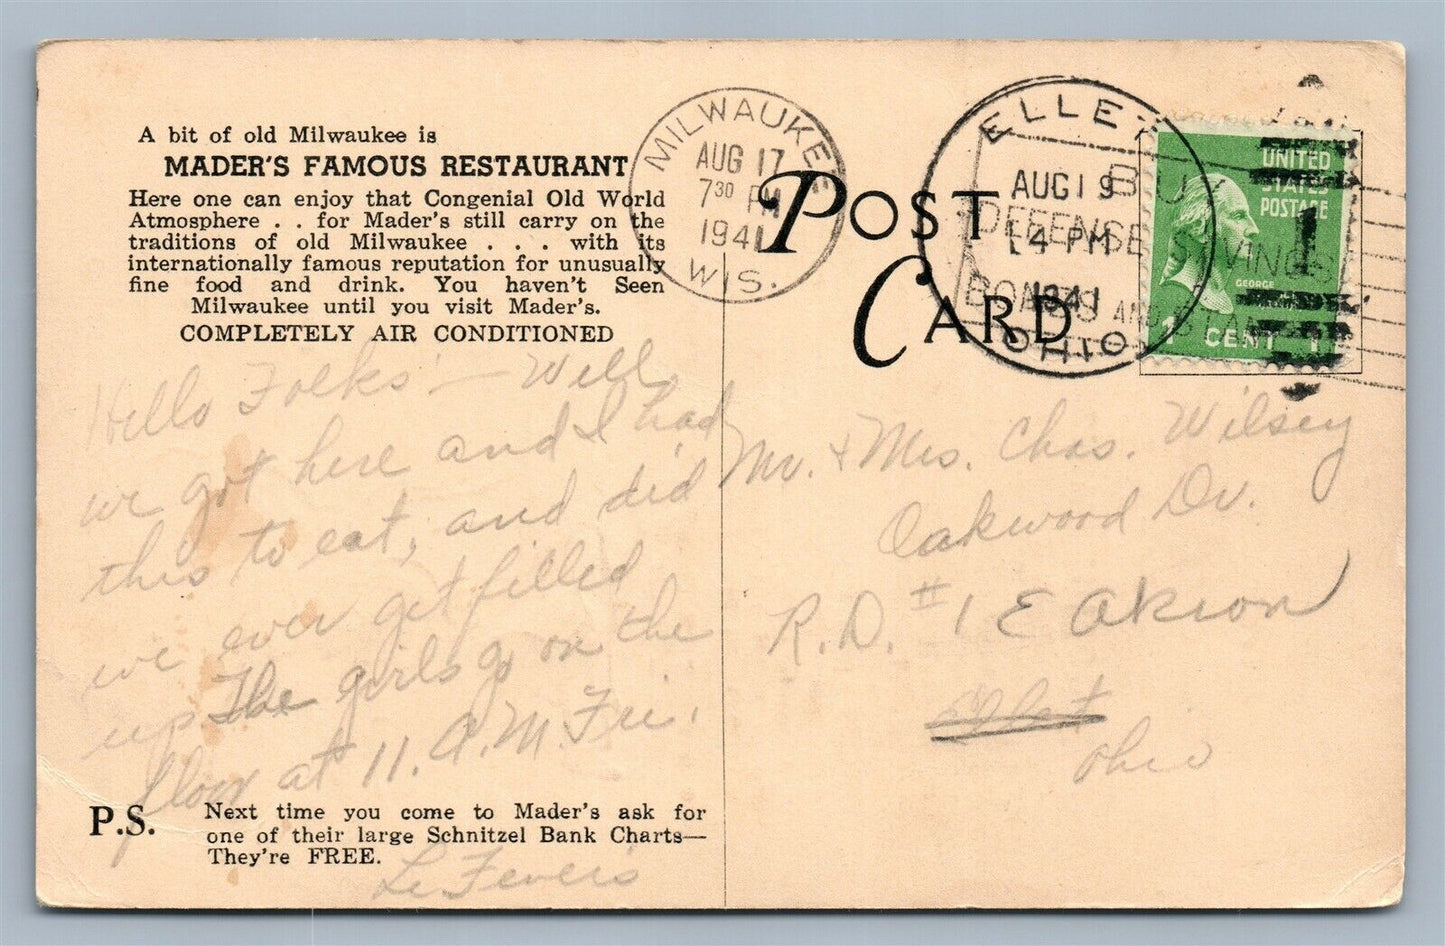 A bit of old Milwaukee is
MADER'S FAMOUS RESTAURANT
Here one can enjoy that Congenial Old World
Atmosphere . . for Mader's still carry on the
traditions of old Milwaukee . . . with its
internationally famous reputation for unusually
fine food and drink. You haven't Seen
Milwaukee until you visit Mader's.
COMPLETELY AIR CONDITIONED
Hello Folks - Well
we got here and I had
this to eat, and did
we ever get filled
up The girls go on the
floor at 11. A.M. Fri.
P.S. Next time you come to Mader's ask for
one of their large Schnitzel Bank Charts—
They're FREE.
Le Fever's
MILWAUKEE
AUG 17
7 30 PM
1941
WIS.
POST
CARD
ELLET
AUG 19
4 PM
1941
OHIO
BUY
DEFENSE SAVINGS
BONDS AND STAMPS
UNITED
STATES
POSTAGE
1
GEORGE
1 CENT 1
Mr. & Mrs. Chas. Wilsey
Oakwood Dr.
R.D. #1 E Akron
Ohio